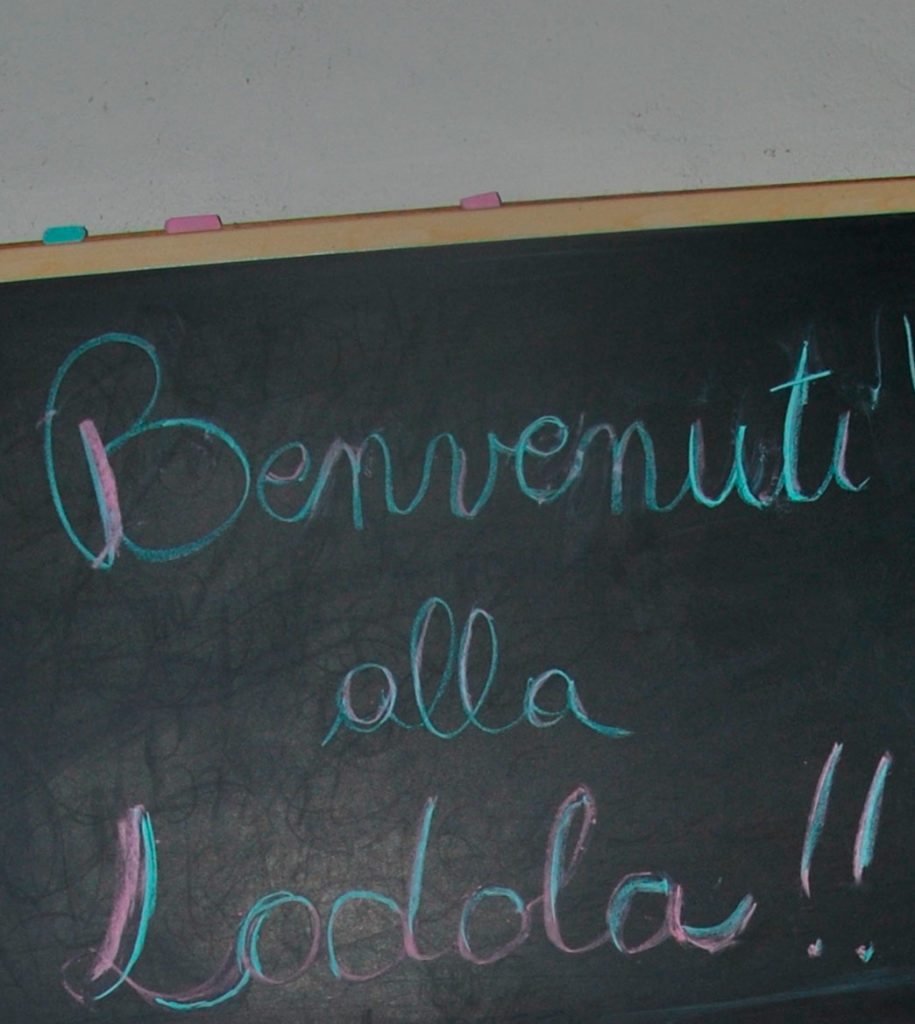 Benvenuti
alla
Lodola!!